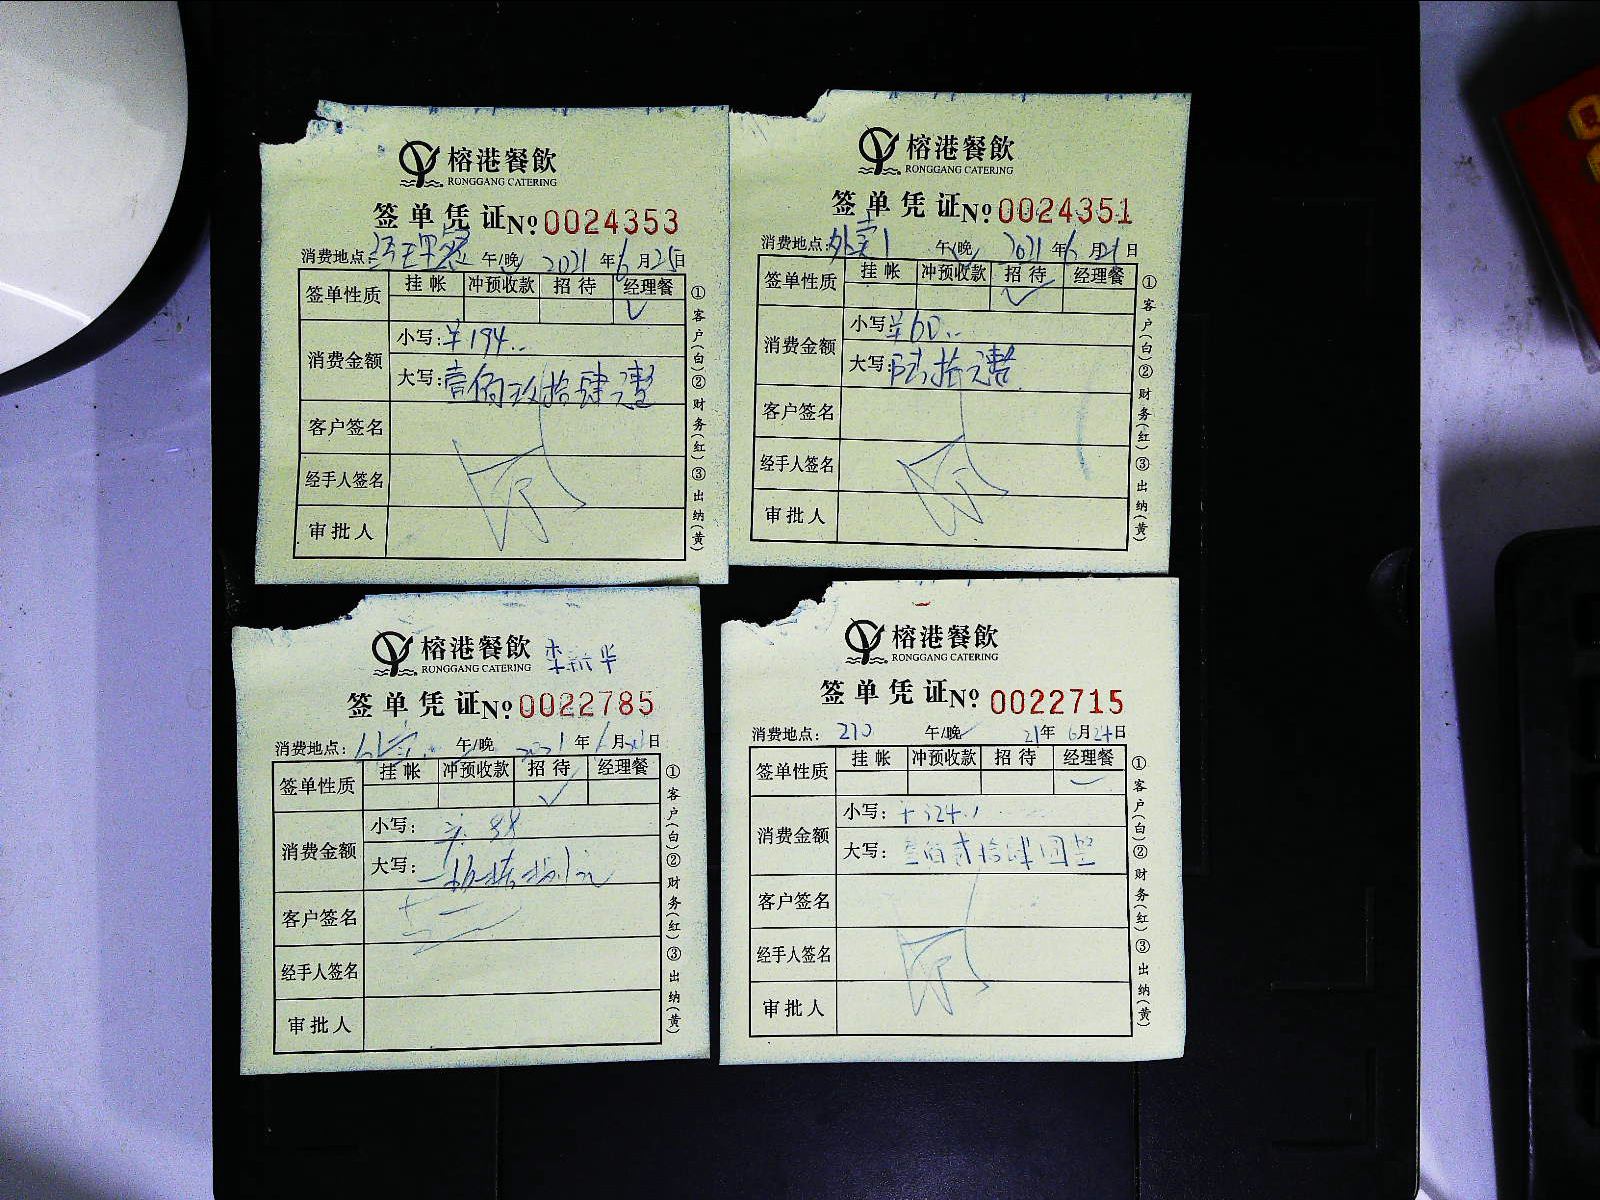 榕港餐飲
RONGGANG CATERING
签单凭证 № 0024353
消费地点: 经理餐 午/晚 2021年6月25日
签单性质 挂帐 冲预收款 招待 经理餐
✓
消费金额 小写: ¥194..
大写: 壹佰玖拾肆元整
客户签名
经手人签名
审批人
①客户(白)②财务(红)③出纳(黄)
榕港餐飲
RONGGANG CATERING
签单凭证 № 0024351
消费地点: 外卖1 午/晚 2021年6月21日
签单性质 挂帐 冲预收款 招待 经理餐
✓
消费金额 小写: ¥60..
大写: 陆拾元整
客户签名
经手人签名
审批人
①客户(白)②财务(红)③出纳(黄)
榕港餐飲
RONGGANG CATERING
签单凭证 № 0022785
消费地点: 午/晚 2021年6月 日
签单性质 挂帐 冲预收款 招待 经理餐
✓
消费金额 小写:
大写:
客户签名
经手人签名
审批人
①客户(白)②财务(红)③出纳(黄)
榕港餐飲
RONGGANG CATERING
签单凭证 № 0022715
消费地点: 210 午/晚 21年6月24日
签单性质 挂帐 冲预收款 招待 经理餐
消费金额 小写: 324
大写: 佰贰拾肆圆整
客户签名
经手人签名
审批人
①客户(白)②财务(红)③出纳(黄)